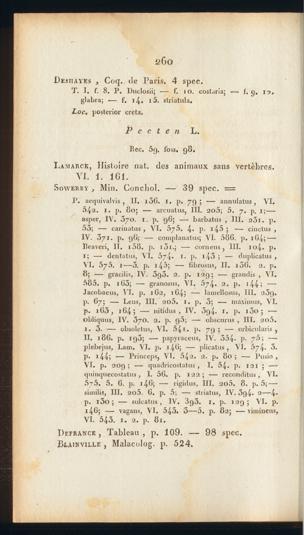 260
DESHAYES, Coq. de Paris. 4 spec.
T. I. f. 8. P. Duclosii; — f. 10. costaria; — f. 9. 12.
glabra; — f. 14. 15. striatula.
Loc. posterior creta.
Pecten L.
Rec. 59. foss. 98.
LAMARCK, Histoire nat. des animaux sans vertèbres.
VI. 1. 161.
SOWERBY, Min. Conchol. — 39 spec. =
P. aequivalvis, II. 136. 1. p. 79; — annulatus, VI.
542. 1. p. 80; — arcuatus, III. 205. 5. 7. p. 1; —
asper, IV. 370. 1. p. 96; — barbatus, III. 231. p.
53; — carinatus, VI. 575. 4. p. 145; — cinctus,
IV. 371. p. 96; — complanatus, VI. 586. p. 164; —
Beaveri, II. 158. p. 131; — corneus, III. 204. p.
1; — dentatus, VI. 574. 1. p. 143; — duplicatus,
VI. 575. 1—3. p. 145; — fibrosus, II. 136. 2. p.
8; — gracilis, IV. 393. 2. p. 129; — grandis, VI.
585. p. 163; — granosus, VI. 574. 2. p. 144; —
Jacobaeus, VI. p. 162, 164; — lamellosus, III. 239.
p. 67; — Lens, III. 205. 1. p. 3; — maximus, VI.
p. 163, 164; — nitidus, IV. 394. 1. p. 130; —
obliquus, IV. 370. 2. p. 95; — obscurus, III. 205.
1. 3. — obsoletus, VI. 541. p. 79; — orbicularis,
II. 186. p. 193; — papyraceus, IV. 354. p. 75; —
plebejus, Lam. VI. p. 146; — plicatus, VI. 574. 3.
p. 144; — Princeps, VI. 542. 2. p. 80; — Pusio,
VI. p. 209; — quadricostatus, I. 54. p. 121; —
quinquecostatus, I. 56. p. 122; — reconditus, VI.
575. 5. 6. p. 146; — rigidus, III. 205. 8. p. 5; —
similis, III. 205. 6. p. 5; — striatus, IV. 394. 2—4.
p. 130; — sulcatus, IV. 393. 1. p. 129; VI. p.
146; — vagans, VI. 543. 3—5. p. 82; — vimineus,
VI. 543. 1. 2. p. 81.
DEFRANCE, Tableau, p. 109. — 98 spec.
BLAINVILLE, Malacolog. p. 524.